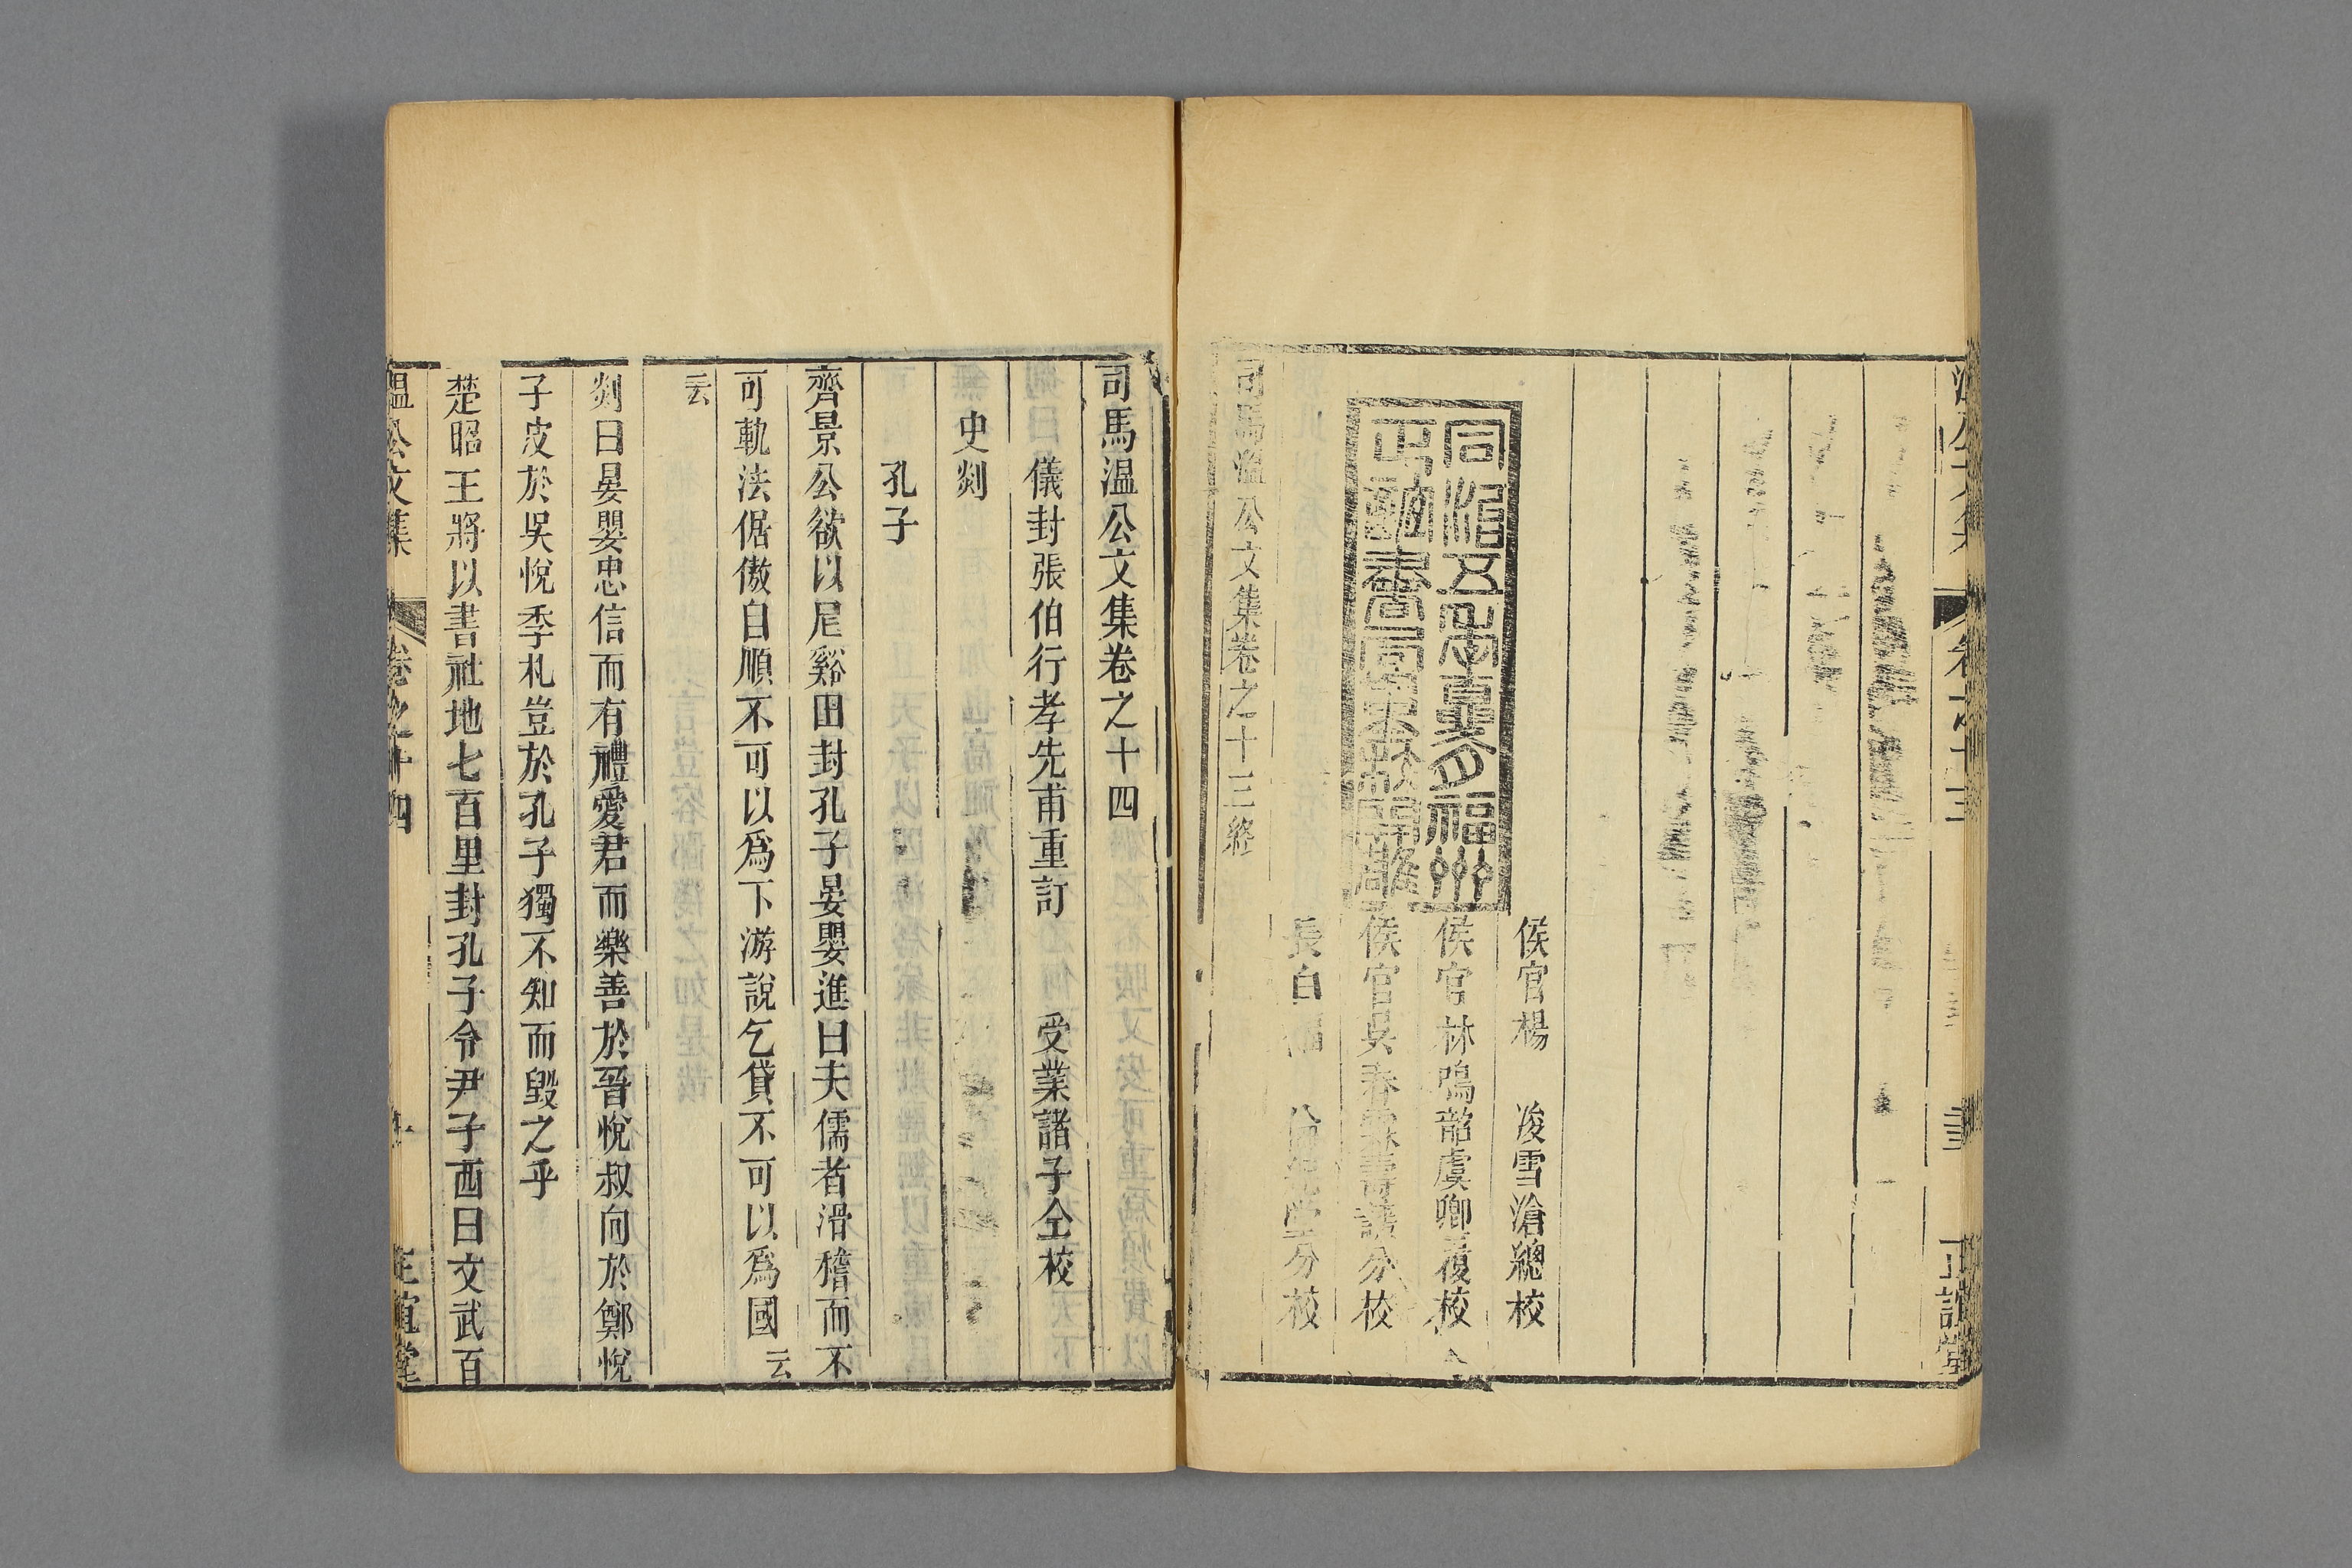 同治五年夏月福州
正誼書局重校開雕
侯官楊　浚雪滄總校
侯官林鴻韶虞卿覆校
分校
長白
分校
司馬溫公文集卷之十三終
正誼堂
司馬温公文集卷之十四
儀封張伯行孝先甫重訂　受業諸子仝校
史剡
孔子
齊景公欲以尼谿田封孔子晏嬰進曰夫儒者滑稽而不
可軌法倨傲自順不可以爲下游說乞貸不可以爲國云
云
剡曰晏嬰忠信而有禮愛君而樂善於晉悅叔向於鄭悅
子皮於吳悅季札豈於孔子獨不知而毀之乎
楚昭王將以書社地七百里封孔子令尹子西曰文武百
温公文集　卷之十四　正誼堂